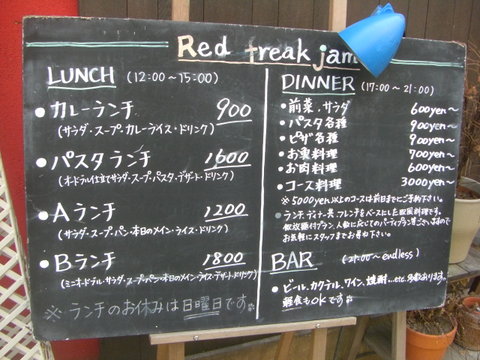 Red freak jam
LUNCH (12:00〜15:00)
● カレーランチ 900
(サラダ・スープ・カレーライス・ドリンク)
● パスタランチ 1600
(オードブル仕立てサラダ・スープ・パスタ・デザート・ドリンク)
● Aランチ 1200
(サラダ・スープ・パン・本日のメイン・ライス・ドリンク)
● Bランチ 1800
(ミニオードブル・サラダ・スープ・パン・本日のメイン・ライス・デザート・ドリンク)
※ランチのお休みは日曜日です
DINNER (17:00〜21:00)
● 前菜、サラダ 600yen〜
● パスタ各種 900yen〜
● ピザ各種 900yen〜
● お魚料理 700yen〜
● お肉料理 600yen〜
● コース料理 3000yen〜
※5000yen以上のコースは前日までにご予約下さい。
● ランチ、ディナー共、フレンチをベースにした欧風料理です。
飲放題付プラン、人数に応じてのパーティプラン等ございますので
お気軽にスタッフまでお尋ね下さい。
BAR (21:00〜endless)
● ビール、カクテル、ワイン、焼酎...etc 多数あります。
軽食もokです